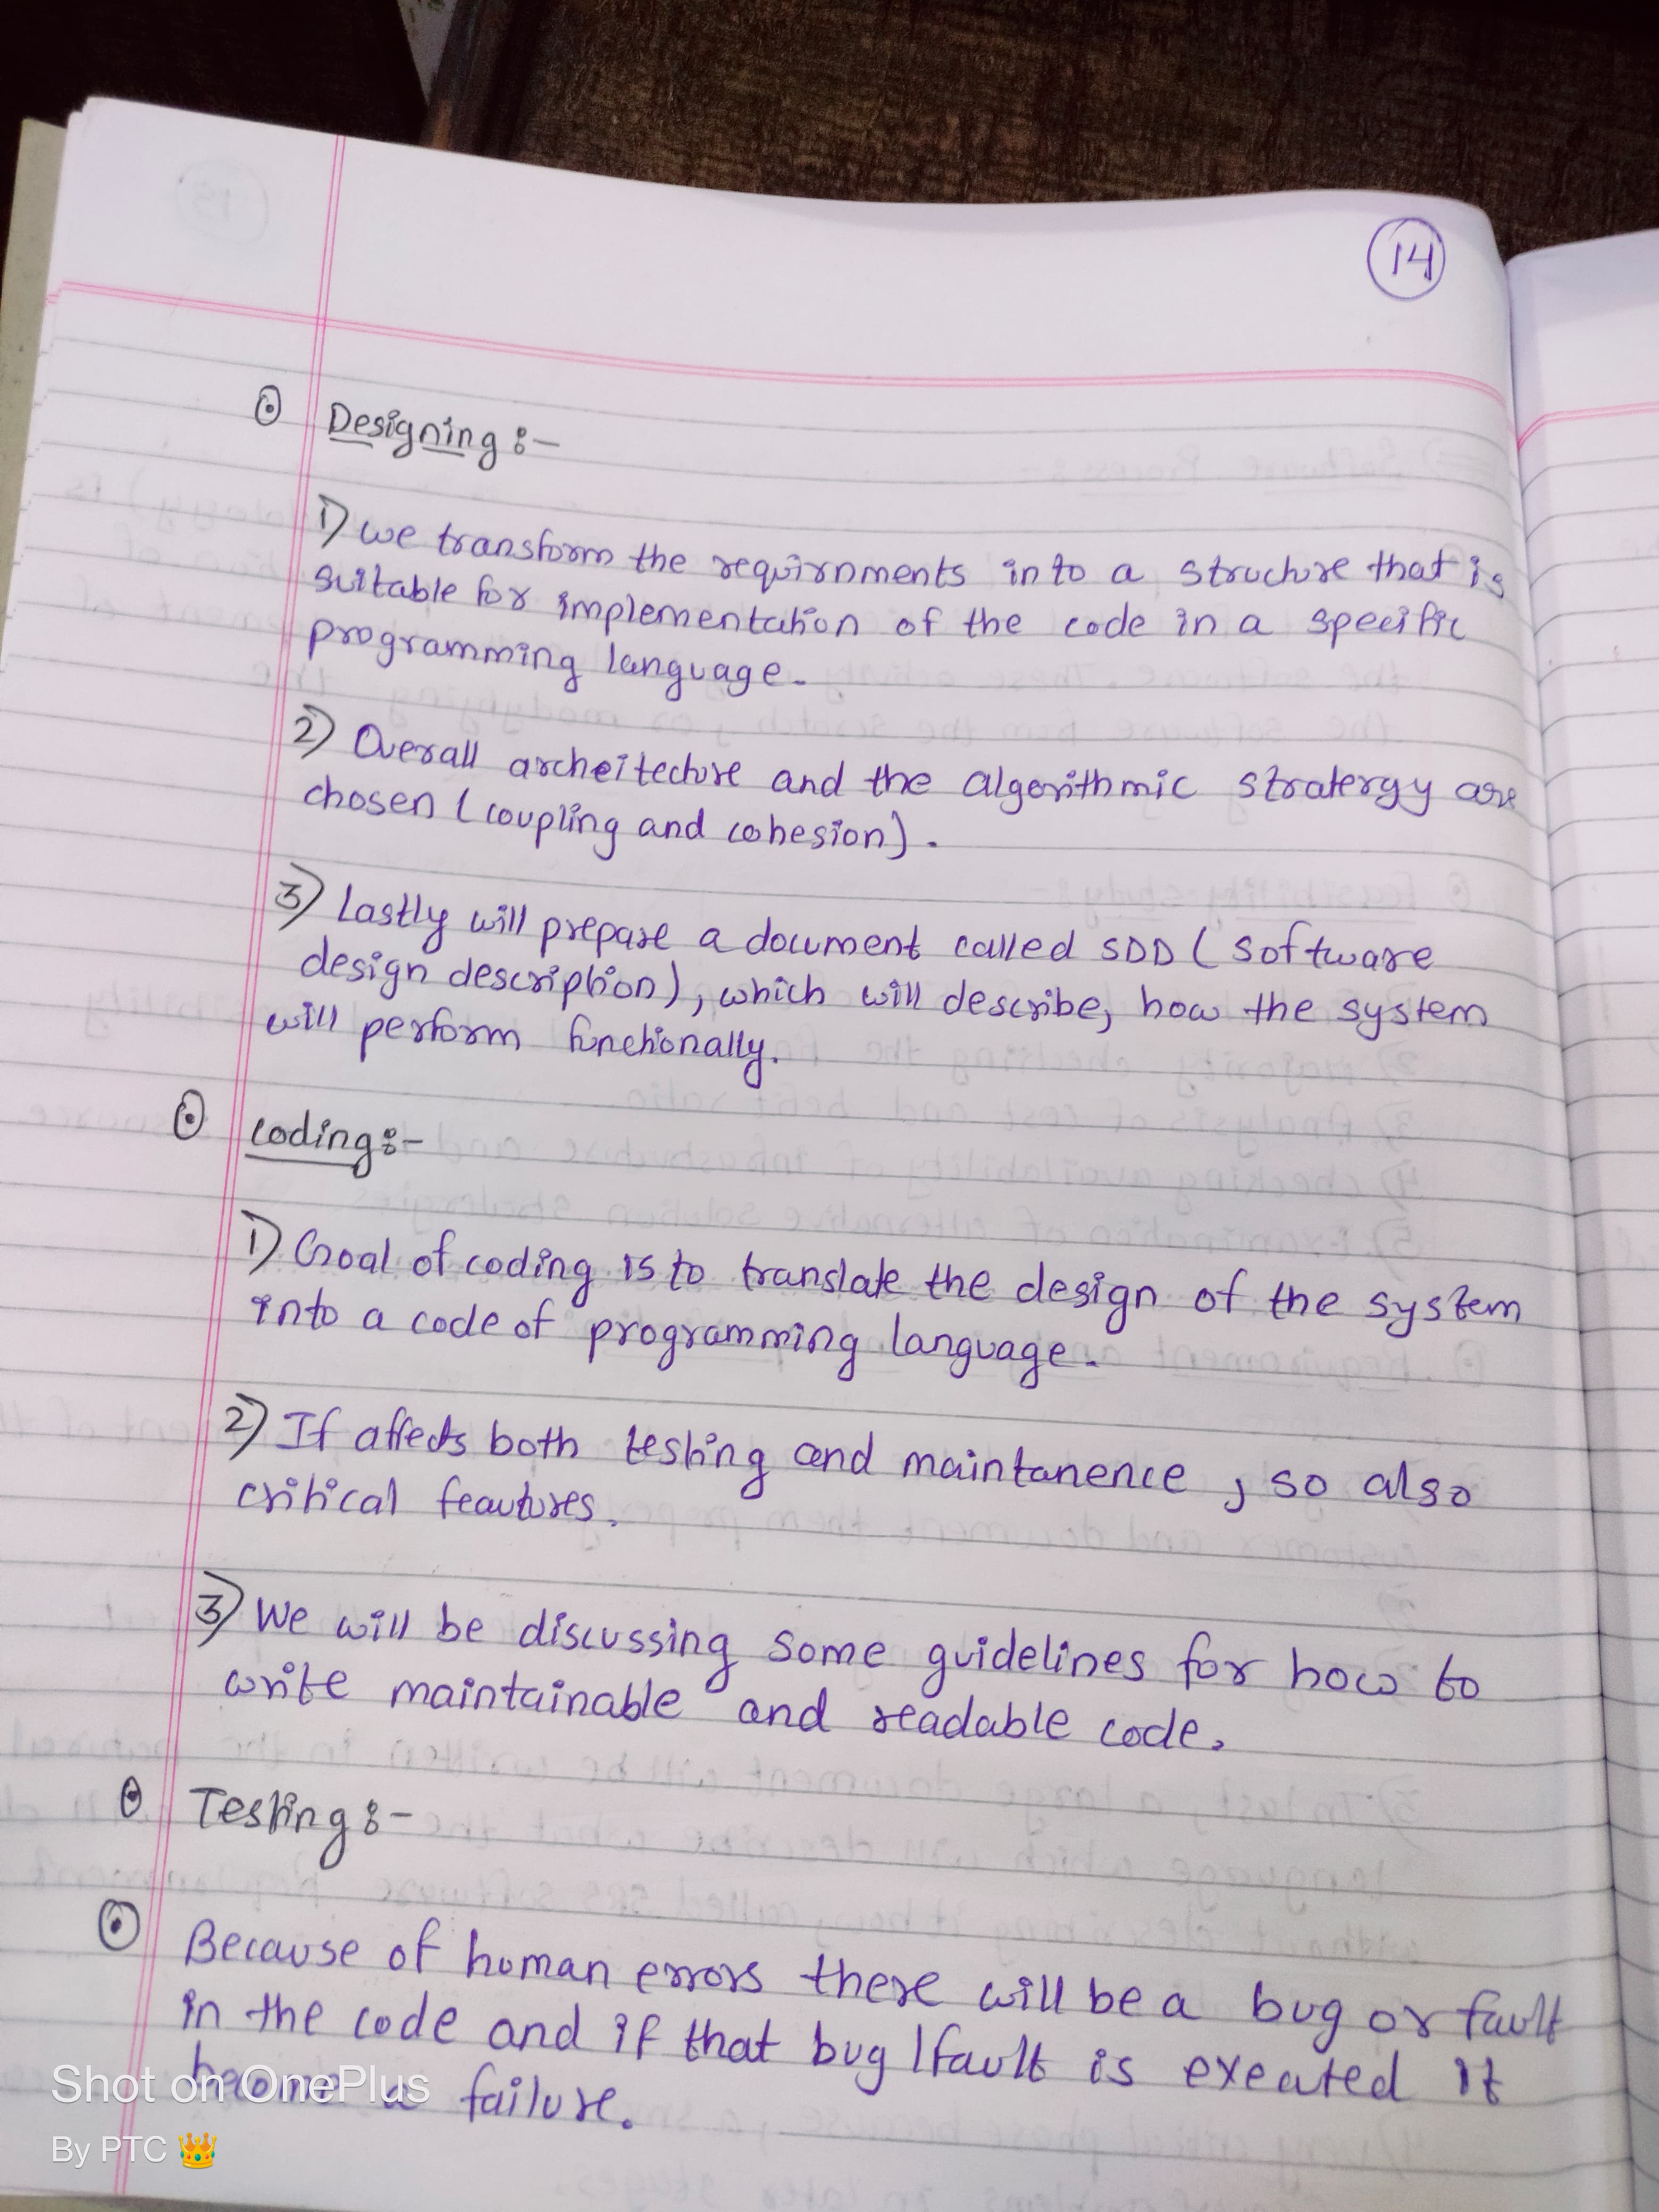 14
Designing :-
1) we transform the requirnments into a structure that is
suitable for implementation of the code in a specific
programming language.
2) Overall archeitecture and the algorithmic stratergy are
chosen (coupling and cohesion).
3) Lastly will prepare a document called SDD (software
design description), which will describe, how the system
will perform functionally.
coding :-
1) Goal of coding is to translate the design of the system
into a code of programming language.
2) If affects both testing and maintanence, so also
critical feautures.
3) We will be discussing some guidelines for how to
write maintainable and readable code.
Testing :-
Because of human errors there will be a bug or fault
in the code and if that bug/fault is exeauted it
become a failure.
Shot on OnePlus
By PTC 👑